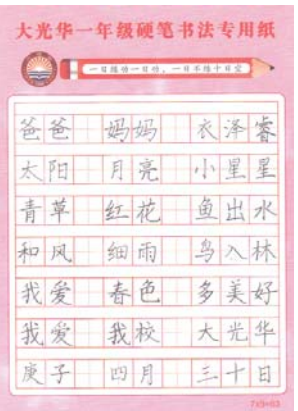 大光华一年级硬笔书法专用纸
一日练仿一日功，一日不练十日空
爸爸 妈妈 衣泽睿
太阳 月亮 小星星
青草 红花 鱼出水
和风 细雨 鸟入林
我爱 春色 多美好
我爱 我校 大光华
庚子 四月 三十日
7x9=63